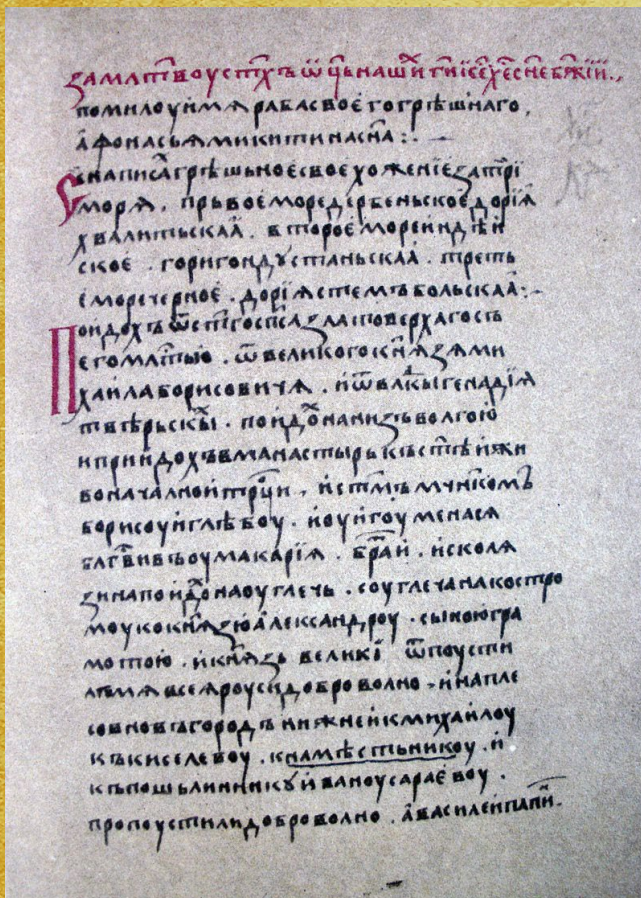 замл҃твоуст҃хъ ѿц҃ьнаши́ ги҃ іс҃е хс҃е сн҃е бж҃їй.,
помилоуймѧрабасвоегогрѣшнаго,
а҆фонасьꙗмикитинасн҃а:. –
Снаписа́грѣшьноесвоехоженїезатрї
морѧ. прьвоемореде́рбеньское дорїꙗ
хвалитьскаа. второемореиндѣй
ское. горигондустаньскаа. треть
еморечерное. дорїꙗстемъбольскаа:–
Поидохъѿст҃госпс҃азлатоверхагосъ
егомлⷭ҇тью. ѿвеликогокнѧзѧми
хаилаборисовичѧ. иѿвлⷣкыгенадїꙗ
твѣрьскⷢ҇ы. поидоⷯнанизъволгою
иприидохъвманастырькъст҃ѣйжи
воначалнойтрⷪ҇ци. ист҃мъмчн҃комъ
борисоуиглѣбоу. иоуигоуменасѧ
блг҃вивъоумакарїꙗ. браⷮи. исколѧ
зинапоидоⷯнаоуглечь. соуглечанакостро
моукокнѧзюалександроу. сыноюгра
мотою. икнѧзь великї ѿпоусти
лъмѧвсеꙗроусидоброволно. инапле
совновъгородънижнейкмихаилоу
къкиселевоу. кнамѣстьникоу. и
къпошьлинникуиваноусараевоу.
пропоустилидоброволно. авасилейпапиⷩ.